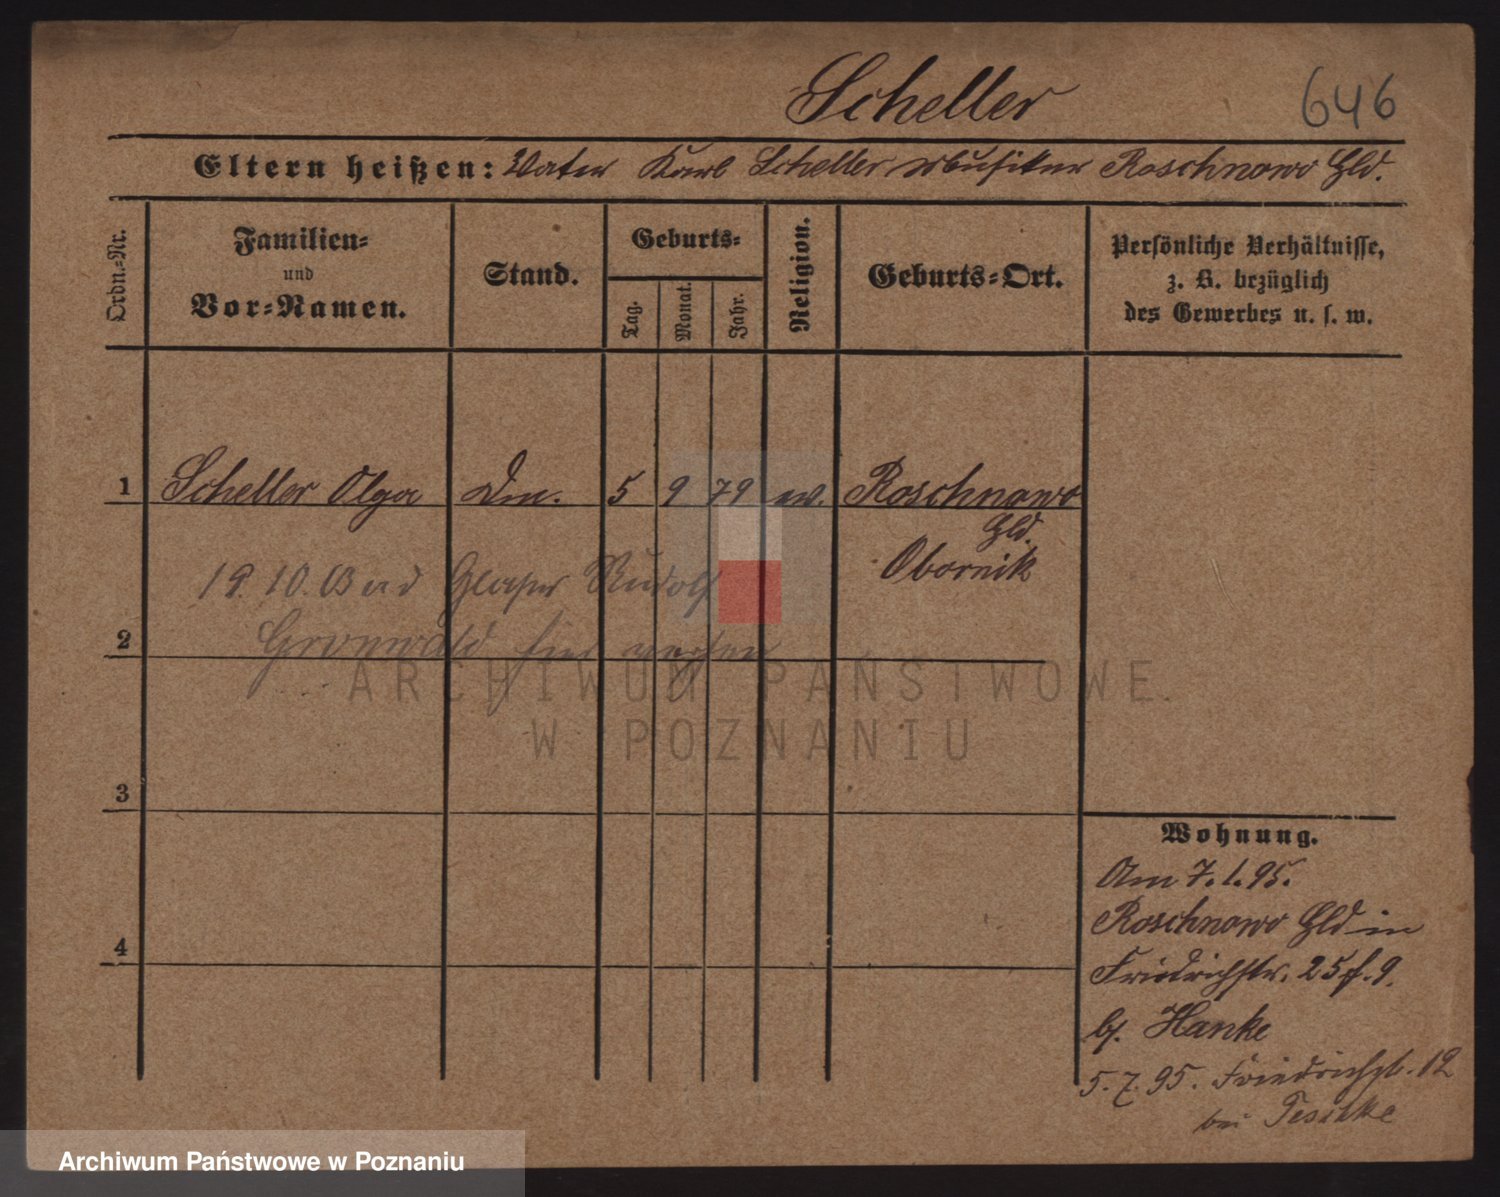 Scheller 646
Eltern heißen: Vater Karl Scheller Roschnowo Gld.
Ordn.-Nr.
Familien-
und
Vor-Namen.
Stand.
Geburts-
Tag.
Monat.
Jahr.
Religion.
Geburts-Ort.
Persönliche Verhältnisse,
z. B. bezüglich
des Gewerbes u. s. w.
1 Scheller Olga 5 9 79 ev. Roschnowo
Gld.
Obornik
19. 10. 03 Glaser Rudolf
2
Grunwald
3
4
Wohnung.
Am 7. 1. 95.
Roschnowo Gld in
Friedrichstr. 25 9.
b/. Hanke
5. 7. 95. Friedrichstr. 12
bei Teschke
ARCHIWUM PAŃSTWOWE
W POZNANIU
Archiwum Państwowe w Poznaniu